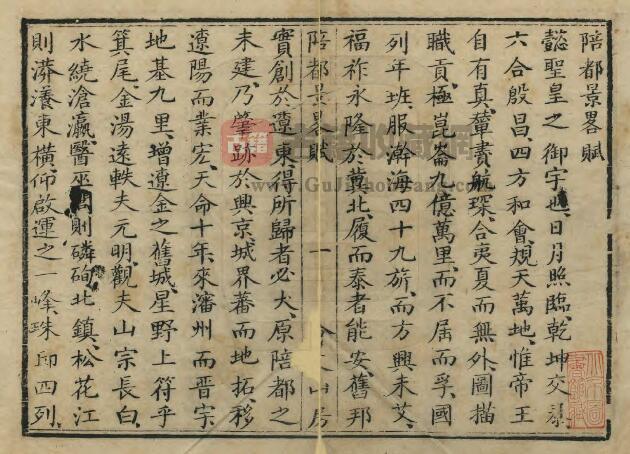 陪都景畧賦
懿聖皇之御宇也、日月照臨、乾坤交泰、
六合殷昌、四方和會、規天萬地、惟帝王
自有真、輦賮航琛、合夷夏而無外、圖描
職貢、極崑崙九億萬里、而不屆而孚、國
列年班、服瀚海四十九旂、而方興未艾、
福祚永隆於冀北、履而泰者能安、舊邦
陪都景畧賦 一 山房
實創於遼東、得所歸者必大、原陪都之
未建、乃肇跡於興京、城界蕃而地拓、移
遼陽而業宏、天命十年、來瀋州而晋宇、
地基九里、增遼金之舊城、星野上符乎
箕尾、金湯遠軼夫元明、觀夫山宗長白、
水繞滄瀛、醫巫閭則磷峋北鎮、松花江
則漭瀁東橫、仰啟運之一峰、珠邱四列、
古籍
www.GuJiShouCang.com